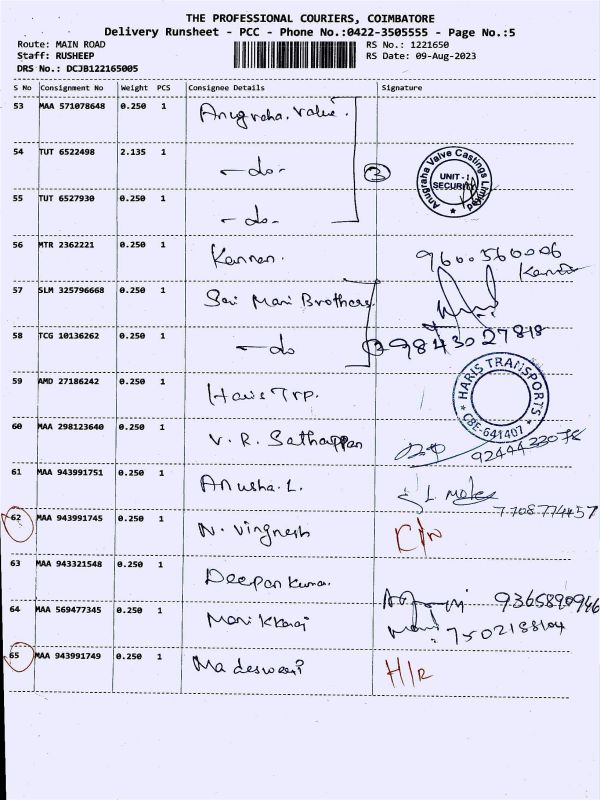 THE PROFESSIONAL COURIERS, COIMBATORE
Delivery Runsheet - PCC - Phone No.:0422-3505555 - Page No.:5
Route: MAIN ROAD RS No.: 1221650
Staff: RUSHEEP RS Date: 09-Aug-2023
DRS No.: DCJB122165005
S No Consignment No Weight PCS Consignee Details Signature
53 MAA 571078648 0.250 1 Anugraha. Valve.
54 TUT 6522498 2.135 1 -do- 3 Anugraha Valve Castings Limited UNIT - I SECURITY
55 TUT 6527930 0.250 1 -do-
56 MTR 2362221 0.250 1 Kannan. 9600560006
Kannan
57 SLM 325796668 0.250 1 Sri Mari Brothers
58 TCG 10136262 0.250 1 -do 2 9843027818
59 AMD 27186242 0.250 1 Haris Trp. HARIS TRANSPORTS CBE-641407
60 MAA 298123640 0.250 1 V. R. Sathappan
61 MAA 943991751 0.250 1 Anusha. L.
62 MAA 943991745 0.250 1 N. Vingnesh
63 MAA 943321548 0.250 1 Deepan Kumar. 9365890946
64 MAA 569477345 0.250 1 Mani 7502188104
65 MAA 943991749 0.250 1 Madeswari